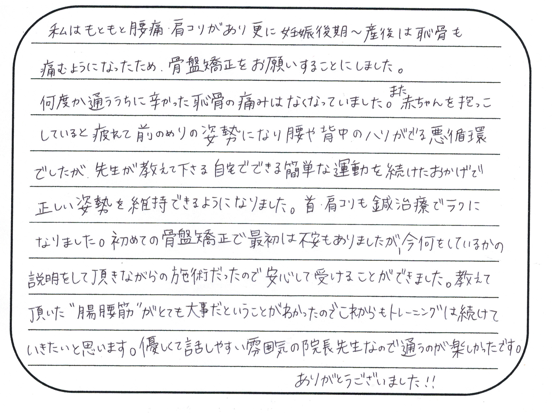 私はもともと腰痛・肩コリがあり更に妊娠後期〜産後は恥骨も
痛むようになったため、骨盤矯正をお願いすることにしました。
何度か通ううちに辛かった恥骨の痛みはなくなっていました。また赤ちゃんを抱っこ
していると疲れて前のめりの姿勢になり腰や背中のハリがでる悪循環
でしたが、先生が教えて下さる自宅でできる簡単な運動を続けたおかげで
正しい姿勢を維持できるようになりました。首・肩コリも鍼治療でラクに
なりました。初めての骨盤矯正で最初は不安もありましたが、今何をしているかの
説明をして頂きながらの施術だったので安心して受けることができました。教えて
頂いた"腸腰筋"がとても大事だということがわかったのでこれからもトレーニングは続けて
いきたいと思います。優しくて話しやすい雰囲気の院長先生なので通うのが楽しかったです。
ありがとうございました!!